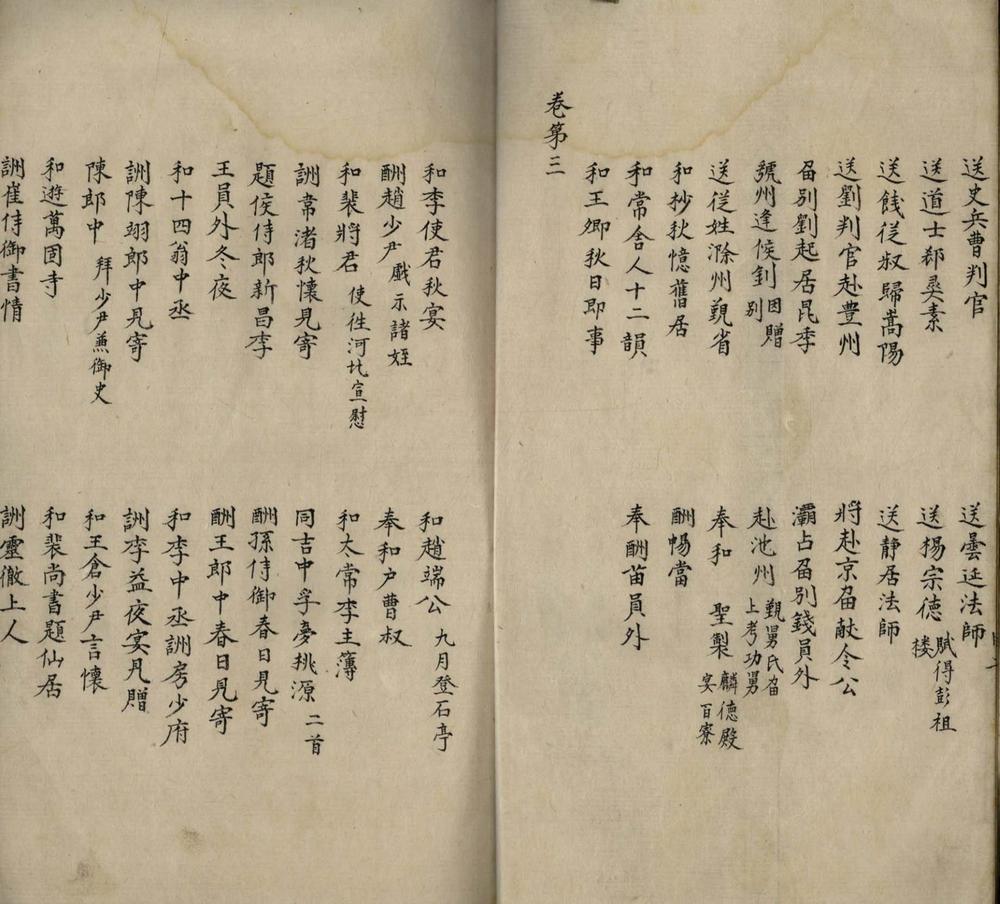 送史兵曹判官　送曇延法師
送道士郄彝素　送楊宗德 賦得彭祖樓
送餞従叔歸嵩陽　送静居法師
送劉判官赴豊州　將赴京畱献令公
畱別劉起居昆季　灞占畱別錢員外
虢州逢侯釗 因贈別　赴池州 覲舅氏畱上考功舅
送従姓滁州覲省　奉和　聖製 麟德殿宴百寮
和抄秋憶舊居　酬暢當
和常舍人十二韻　奉酬苗員外
和王卿秋日即事
卷第三
和李使君秋宴　和趙端公 九月登石亭
酬趙少尹 戲示諸姪　奉和户曹叔
和裴將君 使徃河北宣慰　和太常李主簿
詶常渚秋懷見寄　同吉中孚夢桃源 二首
題侯侍郎新昌李　酬孫侍御春日見寄
王員外冬夜　酬王郎中春日見寄
和十四翁中丞　和李中丞詶房少府
詶陳翃郎中見寄　詶李益夜宴見贈
陳郎中 拜少尹兼御史　和王倉少尹言懷
和遊萬固寺　和裴尚書題仙居
詶崔侍御書情　詶靈徹上人